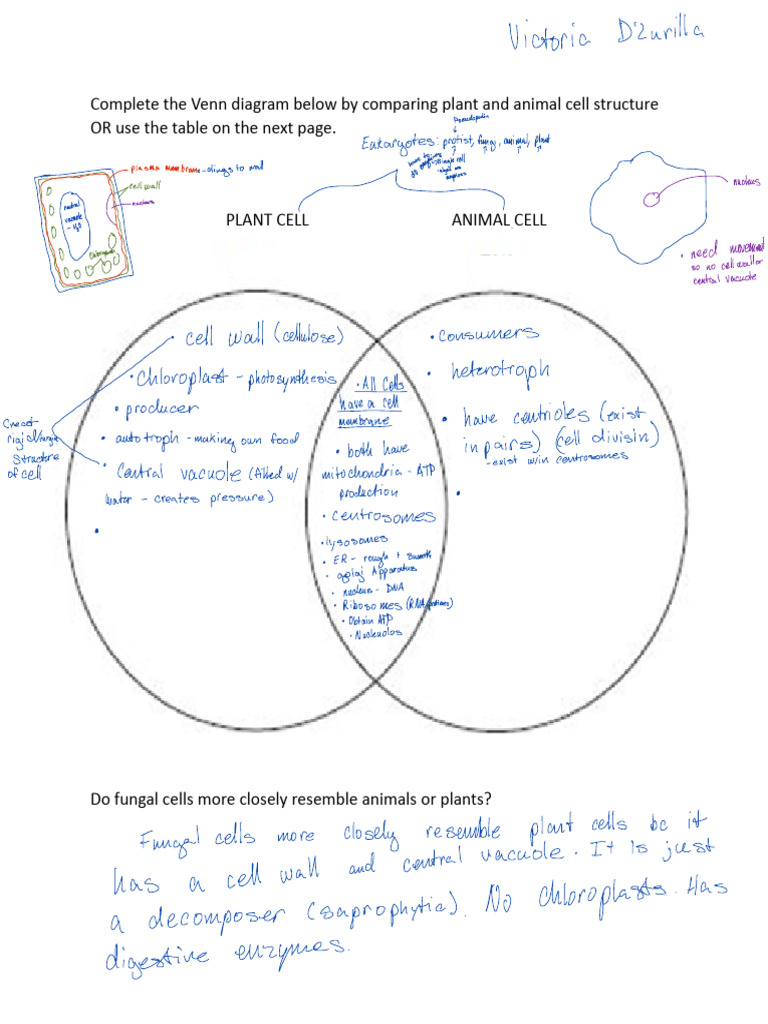 Victoria D'Zurilla
Complete the Venn diagram below by comparing plant and animal cell structure
OR use the table on the next page.
Pseudopodia
Eukaryotes: protist, fungi, animal, plant
single cell
plasma membrane - clings to wall
cell wall
nucleus
central
vacuole
- H₂O
Chloroplasts
PLANT CELL
ANIMAL CELL
nucleus
• need movement
so no cell wall or
central vacuole
• cell wall (cellulose)
• Chloroplast - photosynthesis
• producer
• autotroph - making own food
• Central vacuole (filled w/
water - creates pressure)
•
rigid
structure
of cell
• All Cells
have a cell
membrane
• both have
mitochondria - ATP
production
• Centrosomes
• lysosomes
• ER - rough + smooth
• golgi Apparatus
• nucleus - DNA
• Ribosomes (RNA proteins)
• Obtain ATP
• Nucleolos
• consumers
• heterotroph
• have centrioles (exist
in pairs) (cell divisin)
- exist w/in centrosomes
•
Do fungal cells more closely resemble animals or plants?
Fungal cells more closely resemble plant cells bc it
has a cell wall and central vacuole. It is just
a decomposer (saprophytic). No chloroplasts. Has
digestive enzymes.